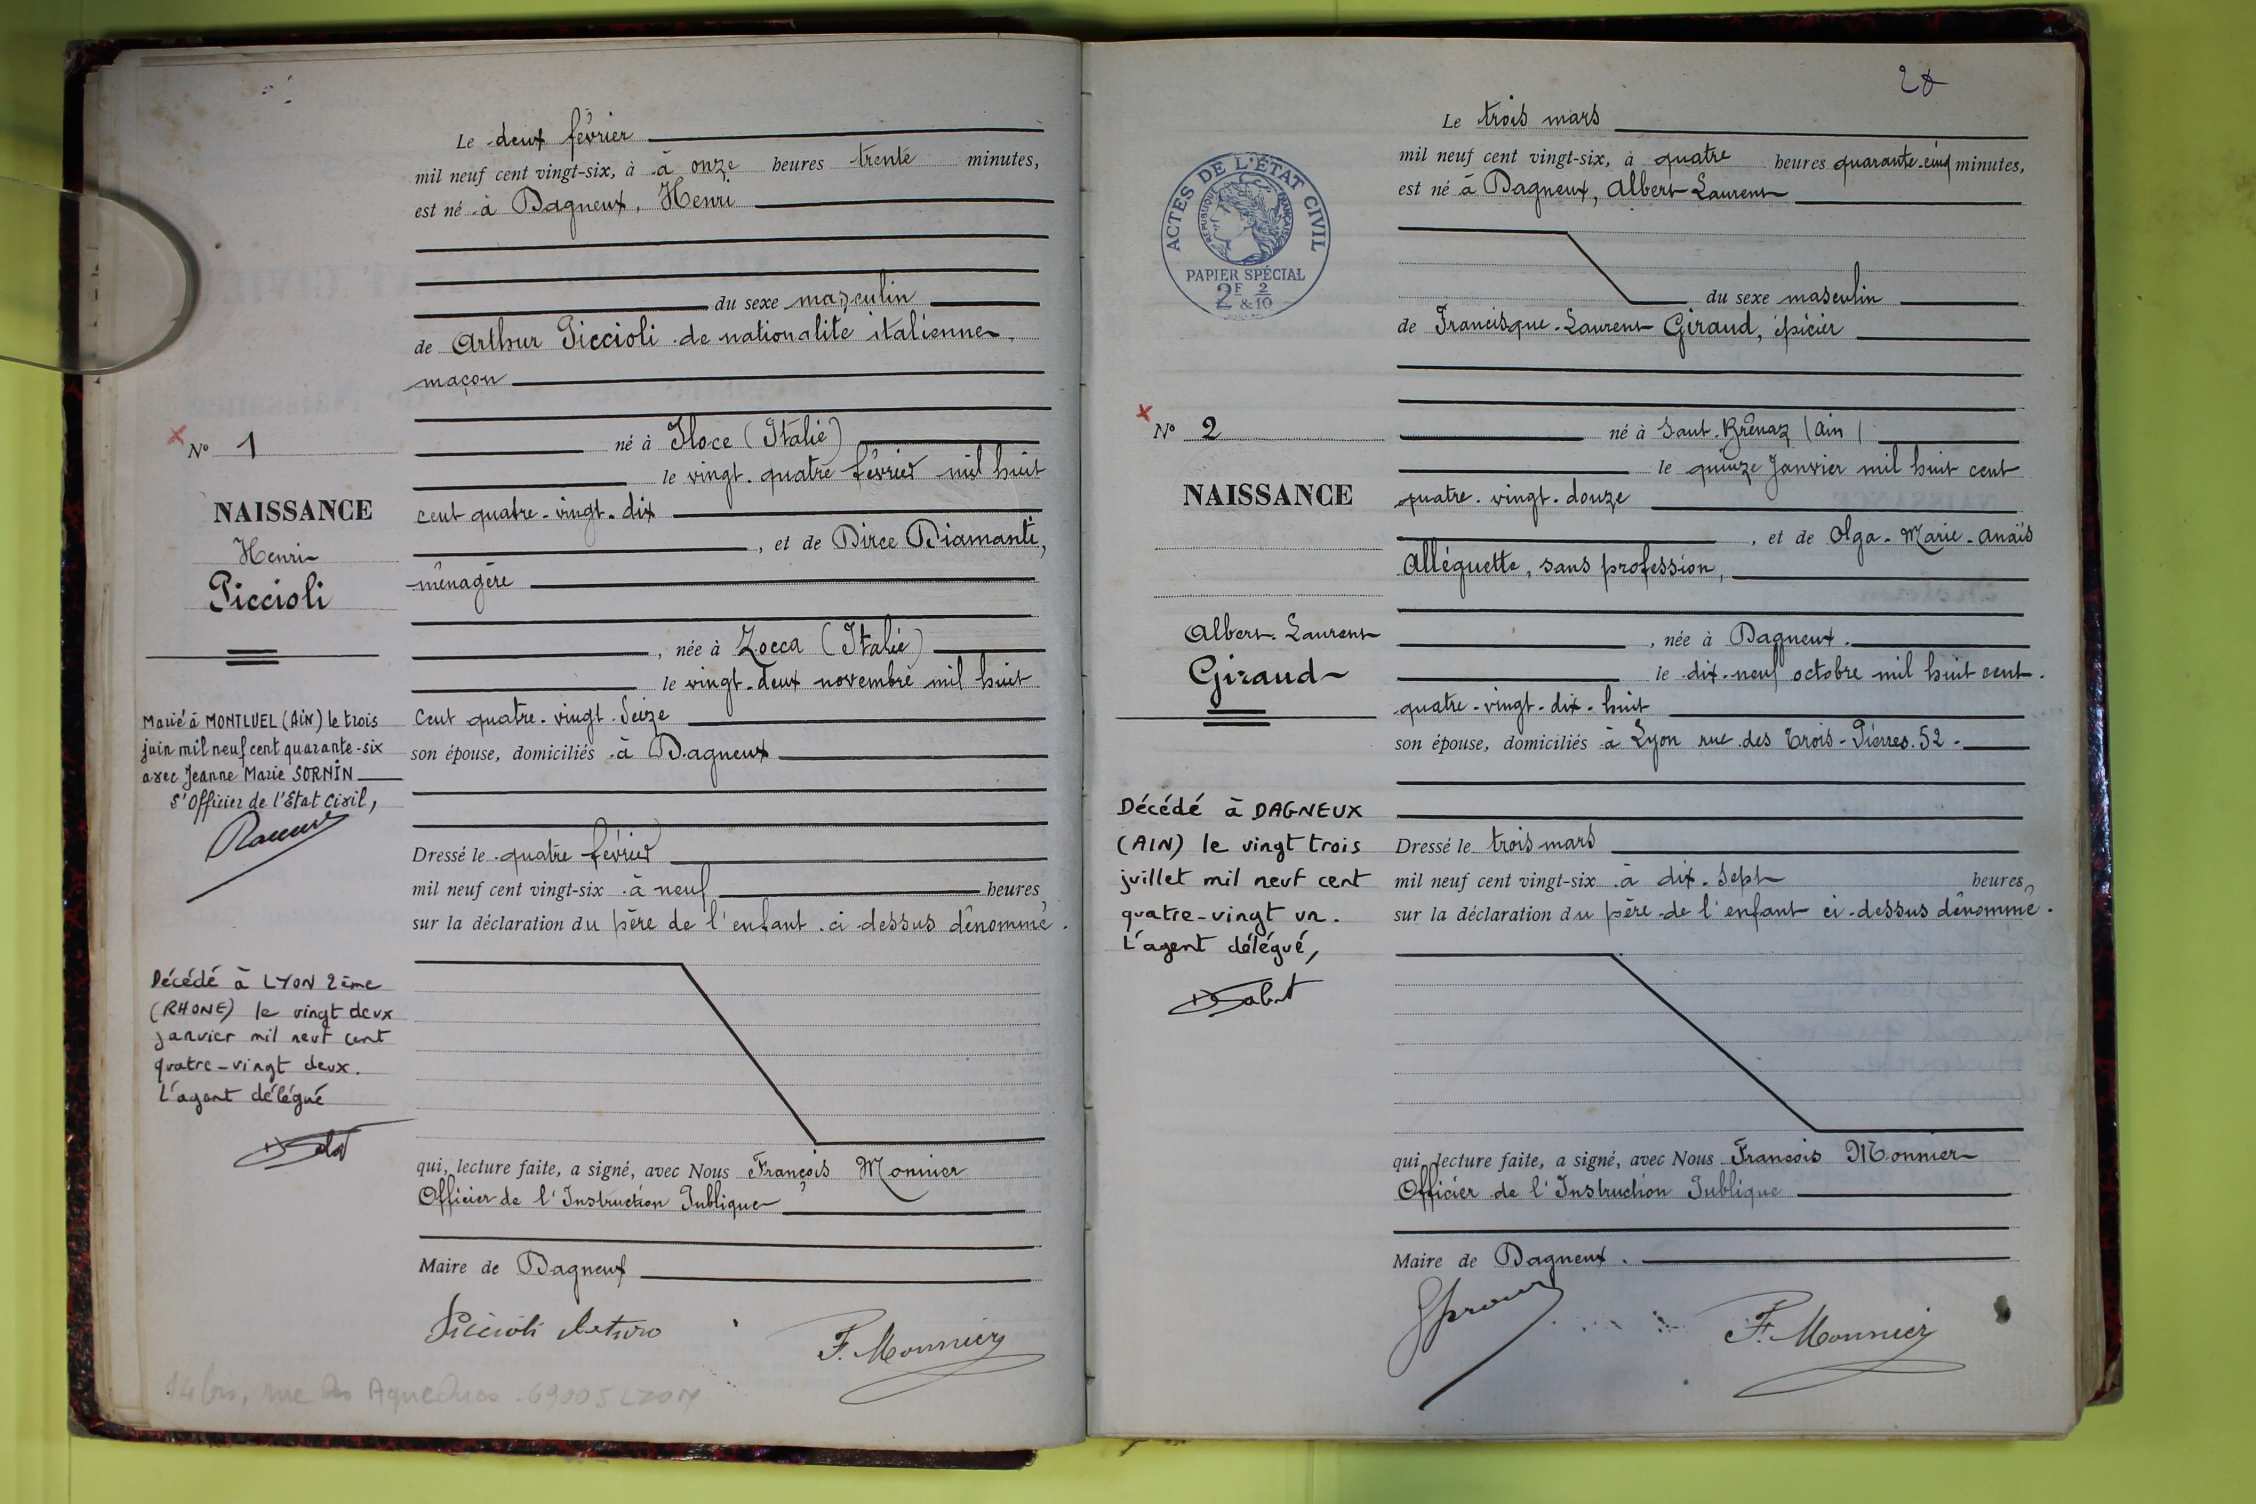 Le deux février
mil neuf cent vingt-six, à à onze heures trente minutes,
est né à Dagneux, Henri
du sexe masculin
de Arthur Piccioli de nationalité italienne,
maçon
né à Iloce (Italie)
le vingt-quatre février mil huit
cent quatre-vingt-dix
, et de Dirce Diamanti,
ménagère
, née à Zocca (Italie)
le vingt-deux novembre mil huit
cent quatre-vingt-seize
son épouse, domiciliés à Dagneux
Dressé le quatre février
mil neuf cent vingt-six à neuf heures,
sur la déclaration du père de l'enfant ci-dessus dénommé.
qui, lecture faite, a signé, avec Nous François Monnier
Officier de l'Instruction Publique
Maire de Dagneux
Piccioli Arturo
F. Monnier
N° 1
NAISSANCE
Henri
Piccioli
Marié à MONTLUEL (AIN) le trois
juin mil neuf cent quarante-six
avec Jeanne Marie SORNIN
L'Officier de l'Etat Civil,
Décédé à LYON 2ème
(RHONE) le vingt deux
janvier mil neuf cent
quatre-vingt deux.
L'agent délégué
14 bis, rue des Aqueducs - 69005 LYON
28
Le trois mars
mil neuf cent vingt-six, à quatre heures quarante-cinq minutes,
est né à Dagneux, Albert-Laurent
du sexe masculin
de Francisque-Laurent Giraud, épicier
né à Sault-Brénaz (Ain)
le quinze Janvier mil huit cent
quatre-vingt-douze
, et de Olga-Marie-Anaïs
Alléguette, sans profession,
, née à Dagneux.
le dix-neuf octobre mil huit cent
quatre-vingt-dix-huit
son épouse, domiciliés à Lyon rue des Trois-Pierres. 52.
Dressé le trois mars
mil neuf cent vingt-six à dix-sept heures,
sur la déclaration du père de l'enfant ci-dessus dénommé.
qui, lecture faite, a signé, avec Nous François Monnier
Officier de l'Instruction Publique
Maire de Dagneux.
F. Monnier
ACTES DE L'ÉTAT CIVIL
RÉPUBLIQUE FRANÇAISE
PAPIER SPÉCIAL
2F & 2/10
N° 2
NAISSANCE
Albert-Laurent
Giraud
Décédé à DAGNEUX
(AIN) le vingt trois
juillet mil neuf cent
quatre-vingt un.
L'agent délégué,